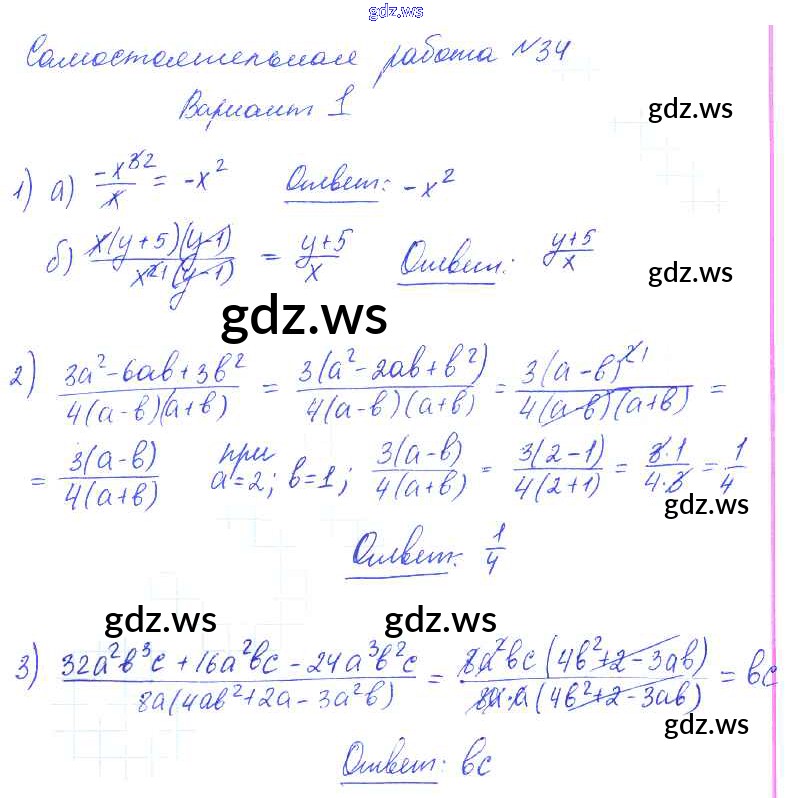 gdz.ws
Самостоятельная работа №34
Вариант 1
gdz.ws
1) а) -x^3 2/x = -x^2 Ответ: -x^2
б) x(y+5)(y-1)/x^2 1(y-1) = y+5/x Ответ: y+5/x
gdz.ws
gdz.ws
2) 3a^2-6ab+3b^2/4(a-b)(a+b) = 3(a^2-2ab+b^2)/4(a-b)(a+b) = 3(a-b)^2 1/4(a-b)(a+b) =
= 3(a-b)/4(a+b) при a=2; b=1; 3(a-b)/4(a+b) = 3(2-1)/4(2+1) = 3·1/4·3 = 1/4
gdz.ws
Ответ: 1/4
gdz.ws
gdz.ws
3) 32a^2b^3c+16a^2bc-24a^3b^2c/8a(4ab^2+2a-3a^2b) = 8a^2bc(4b^2+2-3ab)/8a·a(4b^2+2-3ab) = bc
gdz.ws
Ответ: bc